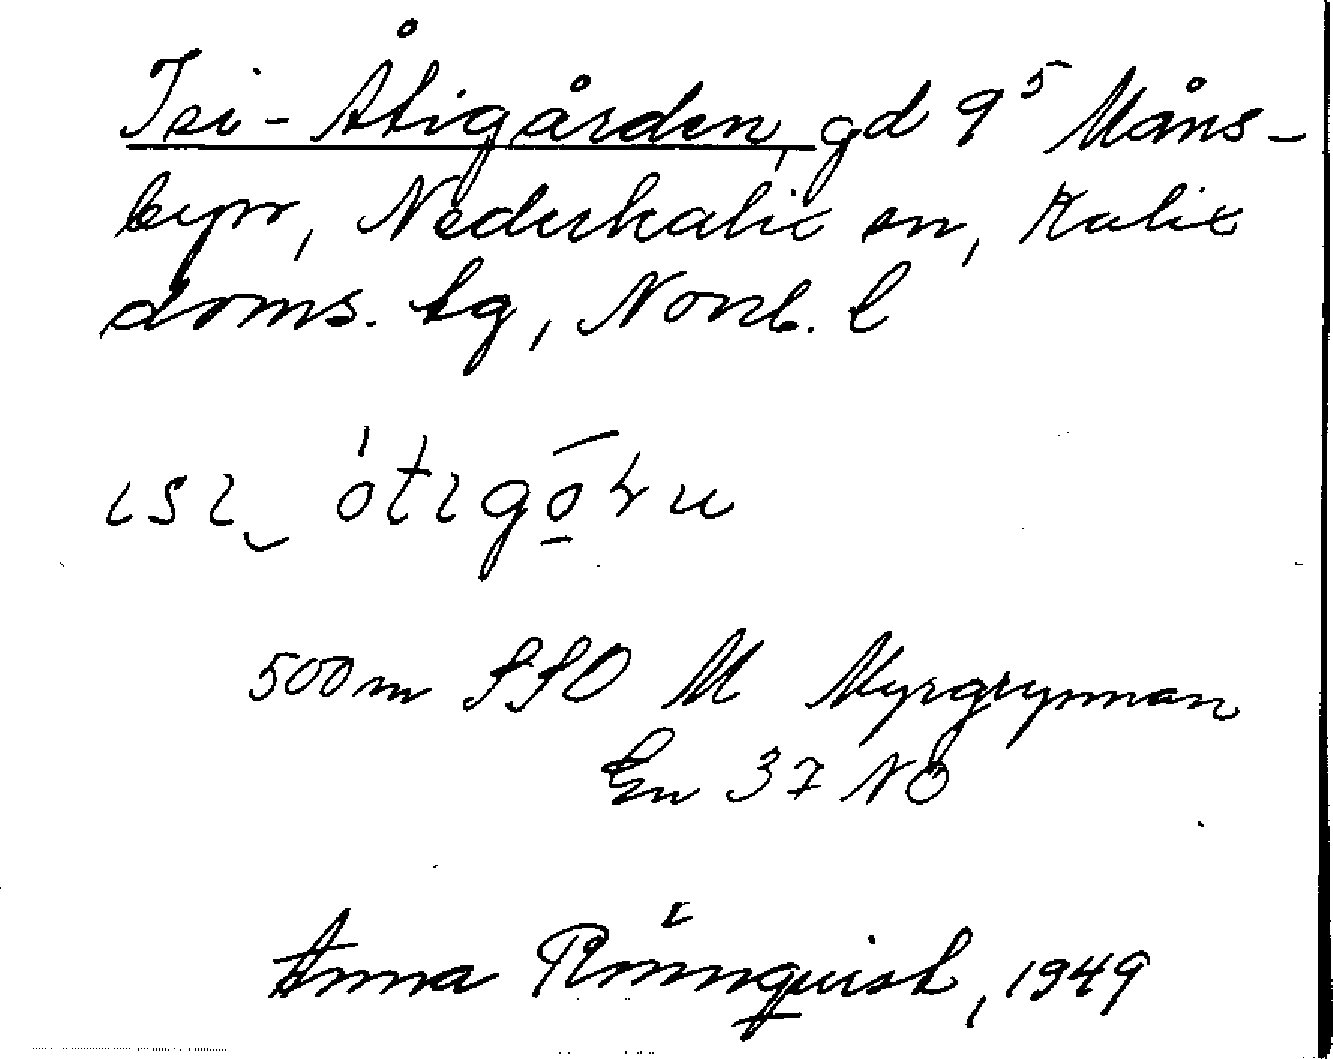 Isi-Åtigården, gd 9⁵ Måns-
byn, Nederkalix sn, Kalix
doms. tg, Norrb. l
ɩsɩ ótɩgō̱ɽu
500 m SSO M Myrgrynnan
En 37 NO
Anna Rönnquist, 1949